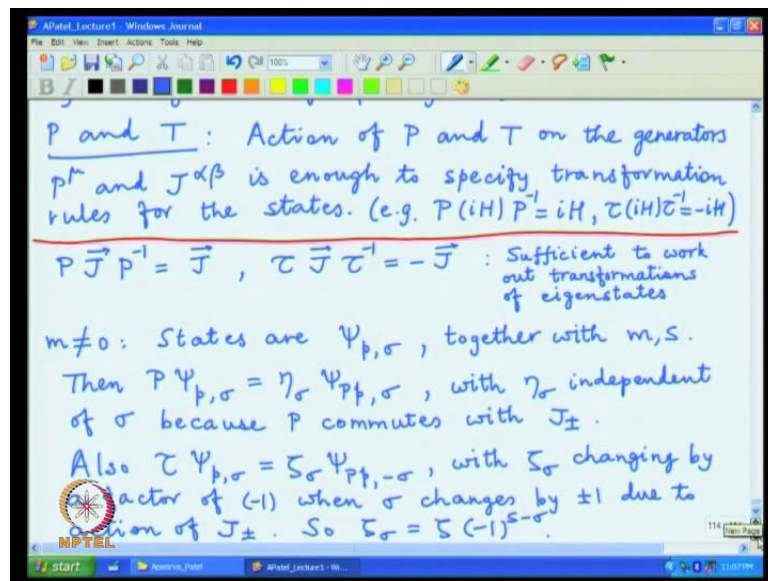 APatel_Lecture1 - Windows Journal
File Edit View Insert Actions Tools Help
100%
B I
P and T : Action of P and T on the generators
P^μ and J^αβ is enough to specify transformation
rules for the states. (e.g. P(iH)P⁻¹ = iH, τ(iH)τ⁻¹ = -iH)
P J⃗ P⁻¹ = J⃗ , τ J⃗ τ⁻¹ = -J⃗ : Sufficient to work
out transformations
of eigenstates
m≠0: States are Ψ_p,σ , together with m, s.
Then P Ψ_p,σ = η_σ Ψ_Pp,σ , with η_σ independent
of σ because P commutes with J±.
Also τ Ψ_p,σ = ζ_σ Ψ_Pp,-σ , with ζ_σ changing by
a factor of (-1) when σ changes by ±1 due to
action of J±. So ζ_σ = ζ (-1)^s-σ.
NPTEL
New Page
start
Apoorva_Patel
APatel_Lecture1 - Wi...
11:07 PM